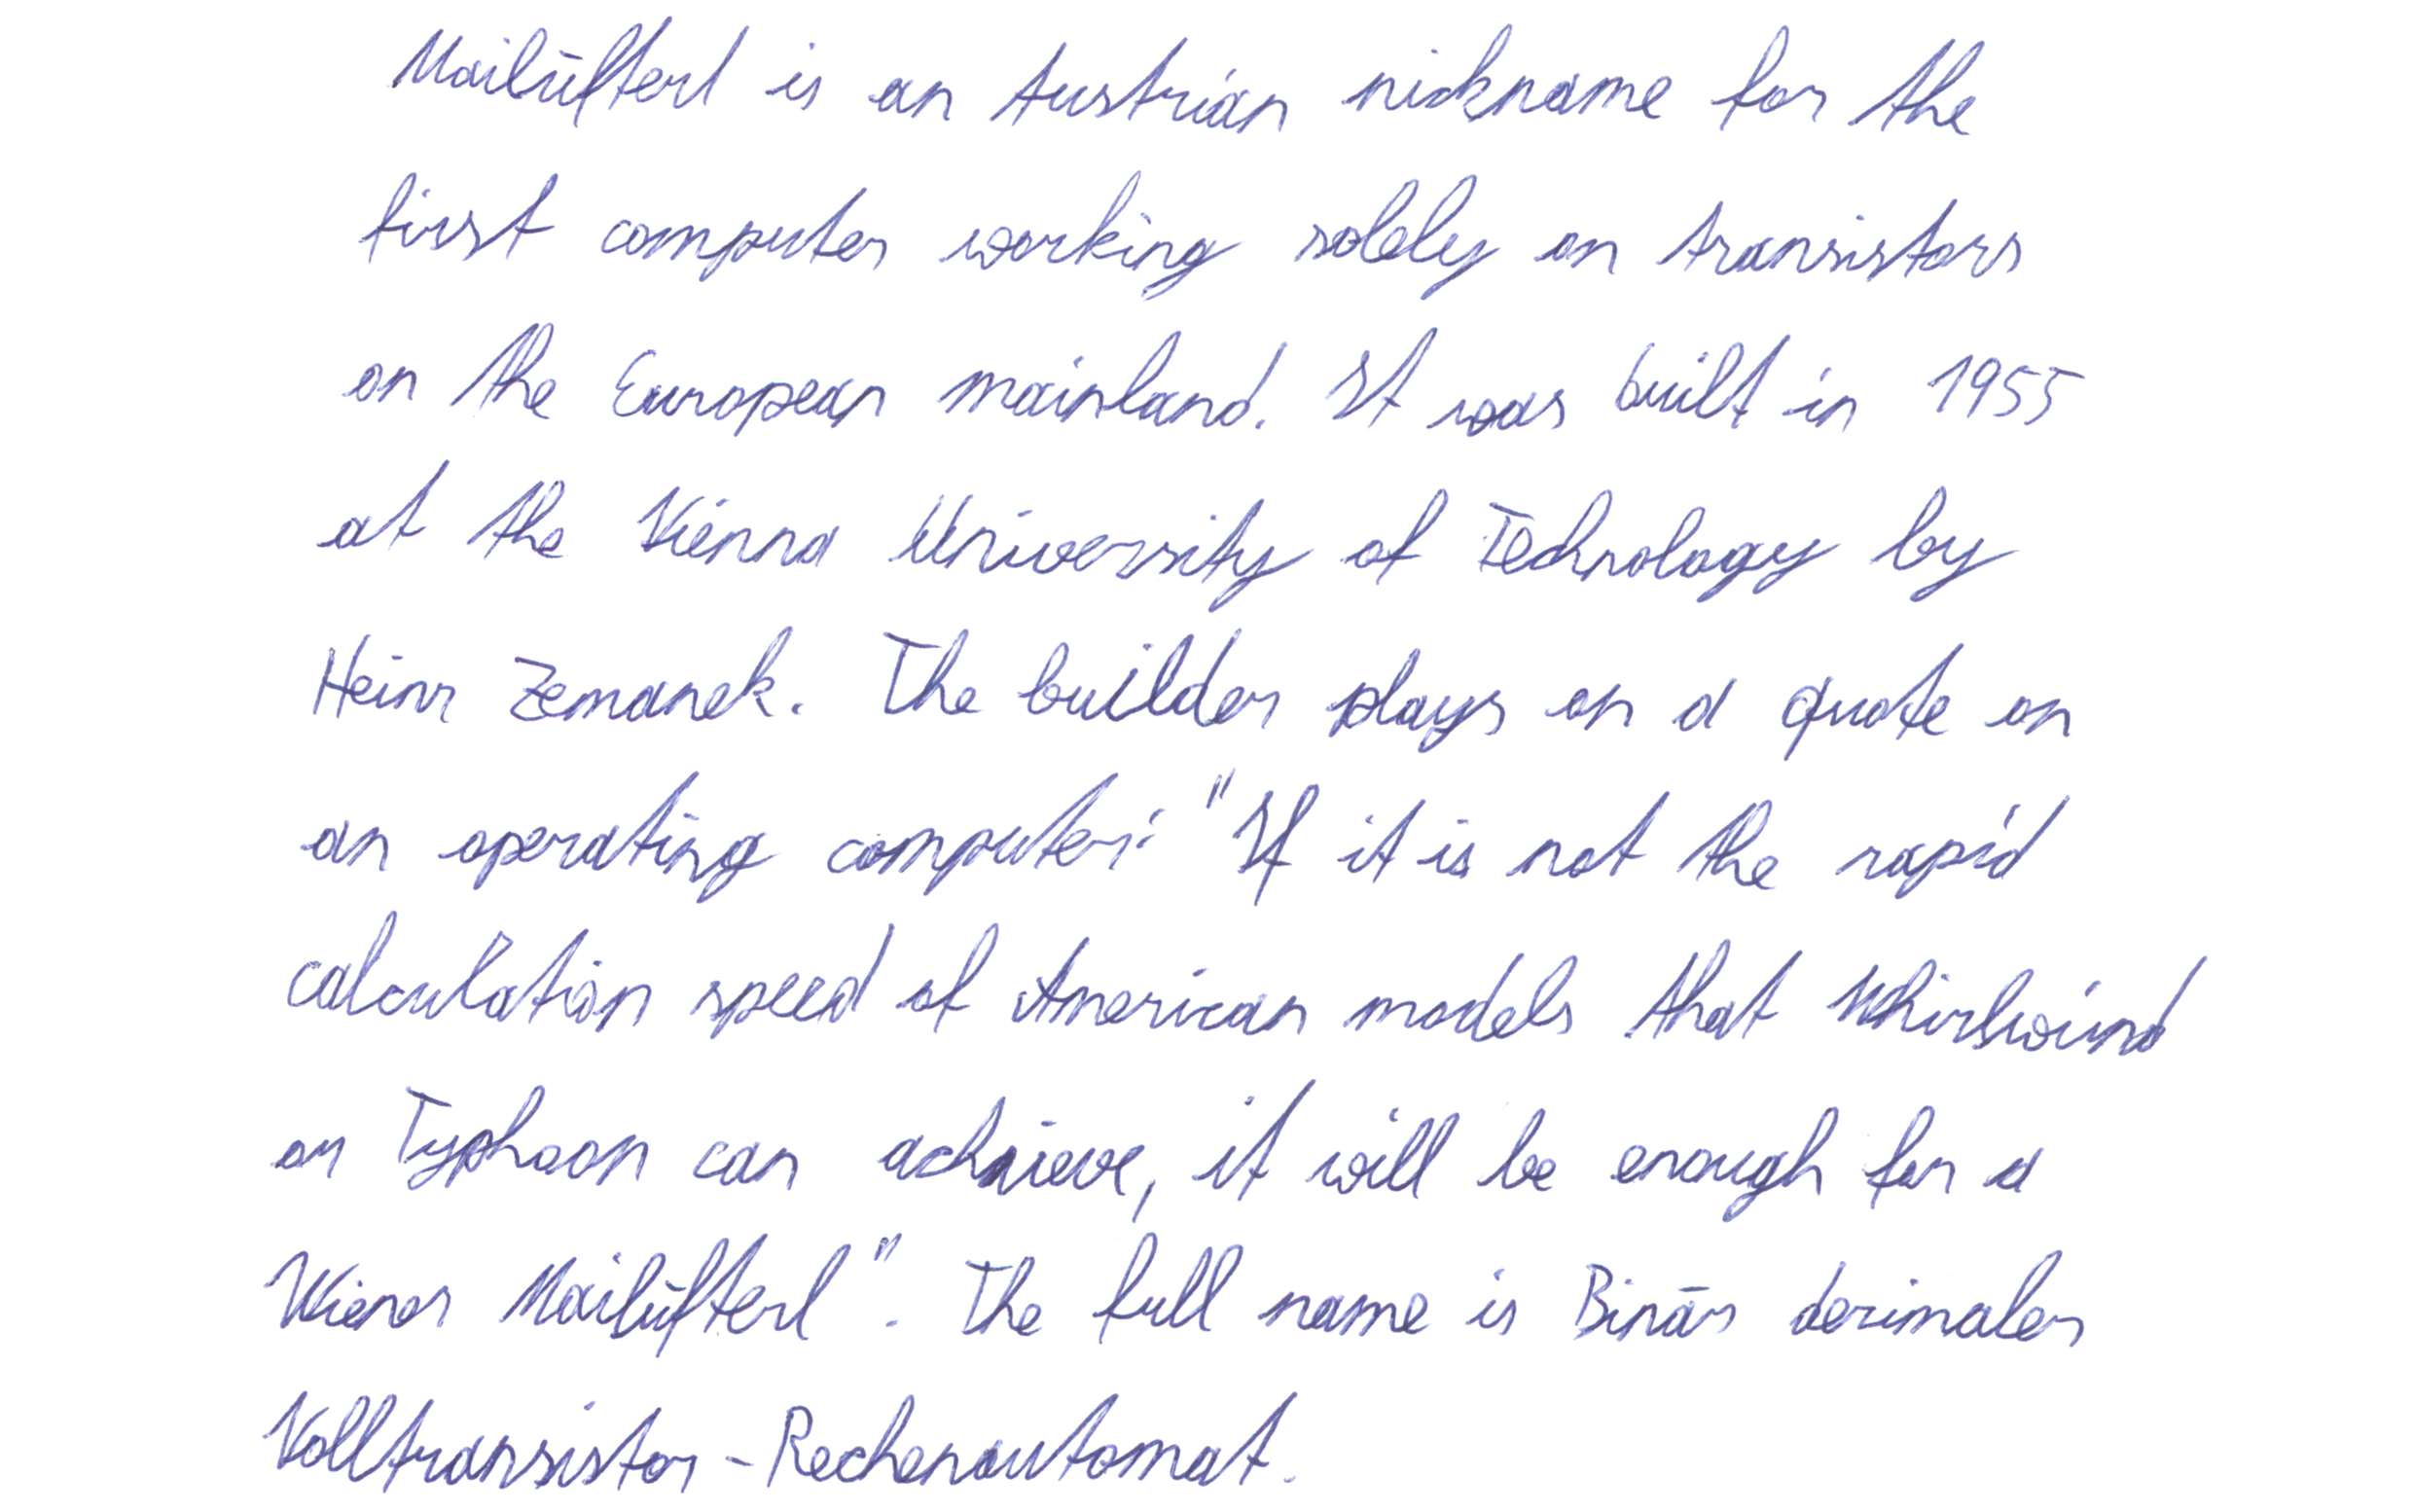 Mailüfterl is an Austrian nickname for the
first computer working solely on transistors
on the European mainland. It was built in 1955
at the Vienna University of Technology by
Heinz Zemanek. The builder plays on a quote on
an operating computer: "If it is not the rapid
calculation speed of American models that Whirlwind
or Typhoon can achieve, it will be enough for a
Wiener Mailüfterl". The full name is Binär dezimaler
Volltransistor-Rechenautomat.